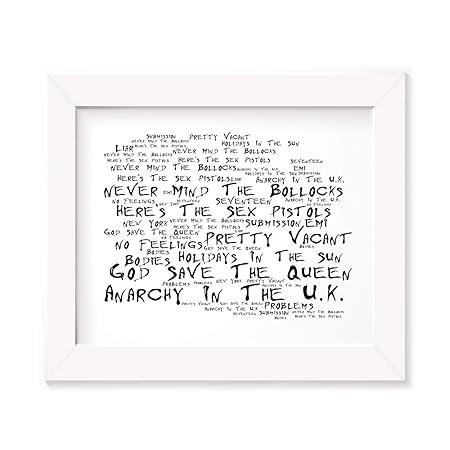 SUBMISSION PRETTY VACANT
NEVER MIND THE BOLLOCKS HOLIDAYS IN THE SUN
LIAR HERE'S THE SEX PISTOLS NEVER MIND THE BOLLOCKS
NEVER MIND THE BOLLOCKS HERE'S THE SEX PISTOLS
HERE'S THE SEX PISTOLS SEVENTEEN
NEVER MIND THE BOLLOCKS EMI
HERE'S THE SEX PISTOLS LIAR ANARCHY IN THE U.K.
NEVER EMI MIND THE BOLLOCKS
NO FEELINGS SEVENTEEN
HERE'S THE SEX PISTOLS
NEW YORK NEVER MIND THE BOLLOCKS SUBMISSION EMI
GOD SAVE THE QUEEN HERE'S THE SEX PISTOLS
NO FEELINGS PRETTY VACANT
BODIES
BODIES HOLIDAYS IN THE SUN
GOD SAVE THE QUEEN
PROBLEMS PROBLEMS NEW YORK PRETTY VACANT HOLIDAYS IN THE SUN
ANARCHY IN THE U.K.
PRETTY VACANT GOD SAVE THE QUEEN PROBLEMS
SEVENTEEN SUBMISSION NEVER MIND THE BOLLOCKS
BODIES HERE'S THE SEX PISTOLS